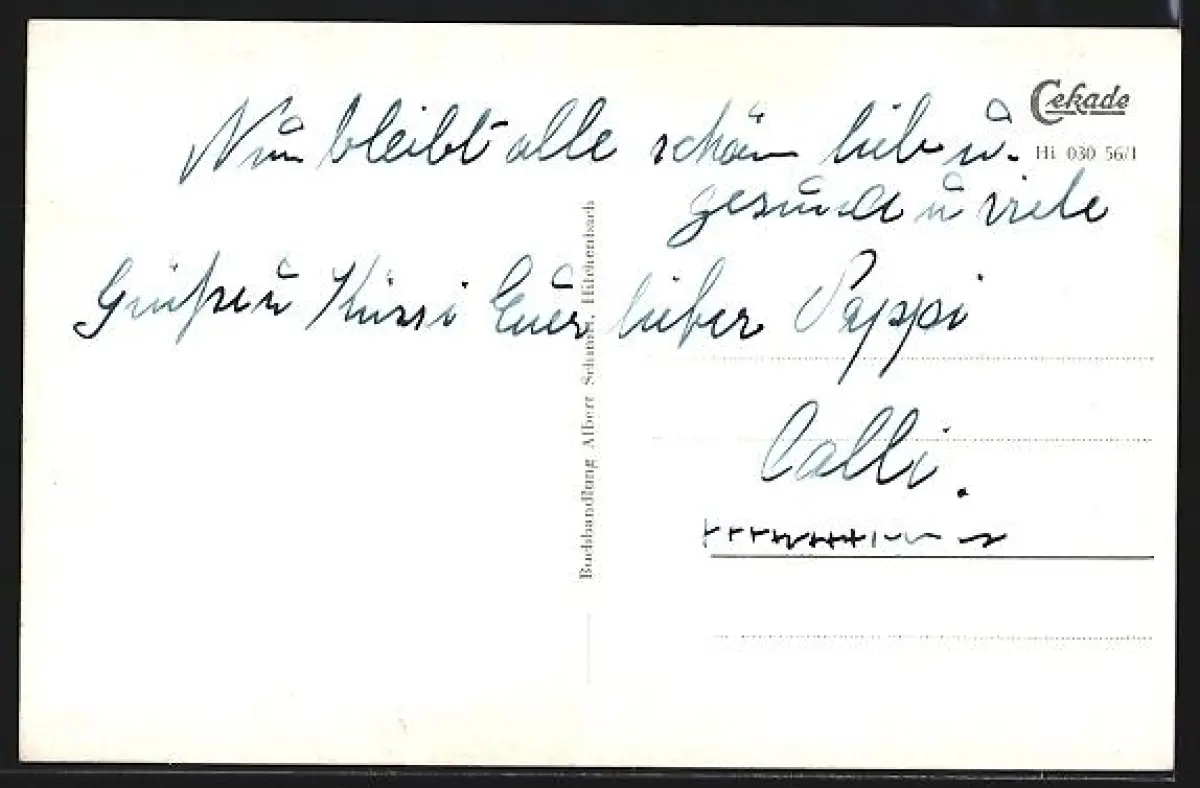 Cekade
Hi 030 56/1
Nun bleibt alle schön lieb u.
gesund u viele
Grüße u Küssi Euer lieber Pappi
Calli.
Buchhandlung Albert Schmidt, Hilchenbach